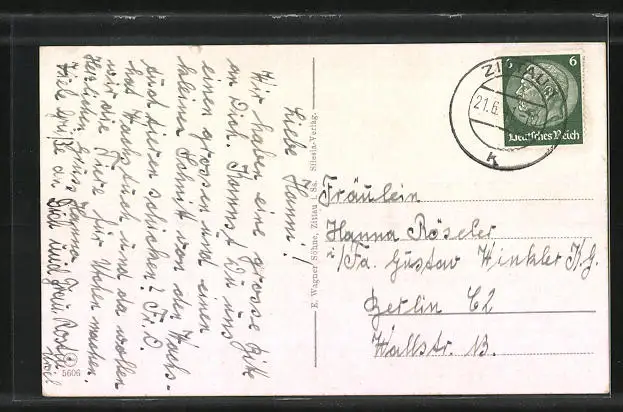 Liebe Hanni!
Wir haben eine grosse Bitte
an Dich. Kannst Du uns
einen grossen und einen
kleinen Schnitt von den Wachs-
tuch tieren schicken? Fr. D.
hat Wachstuch und da wollen
wir die Tiere für Ute machen.
Herzlichen Gruss, Hanna
Viele Grüße an Dich und Frau
5606
E. Wagner Söhne, Zittau i. Sa. Silesia-Verlag.
6 6
Deutsches Reich
ZITTAU
21.6.
k
Fräulein
Hanna Röseler
i/Fa. Gustav Winkler K.G.
Berlin C2
Wallstr. 13.